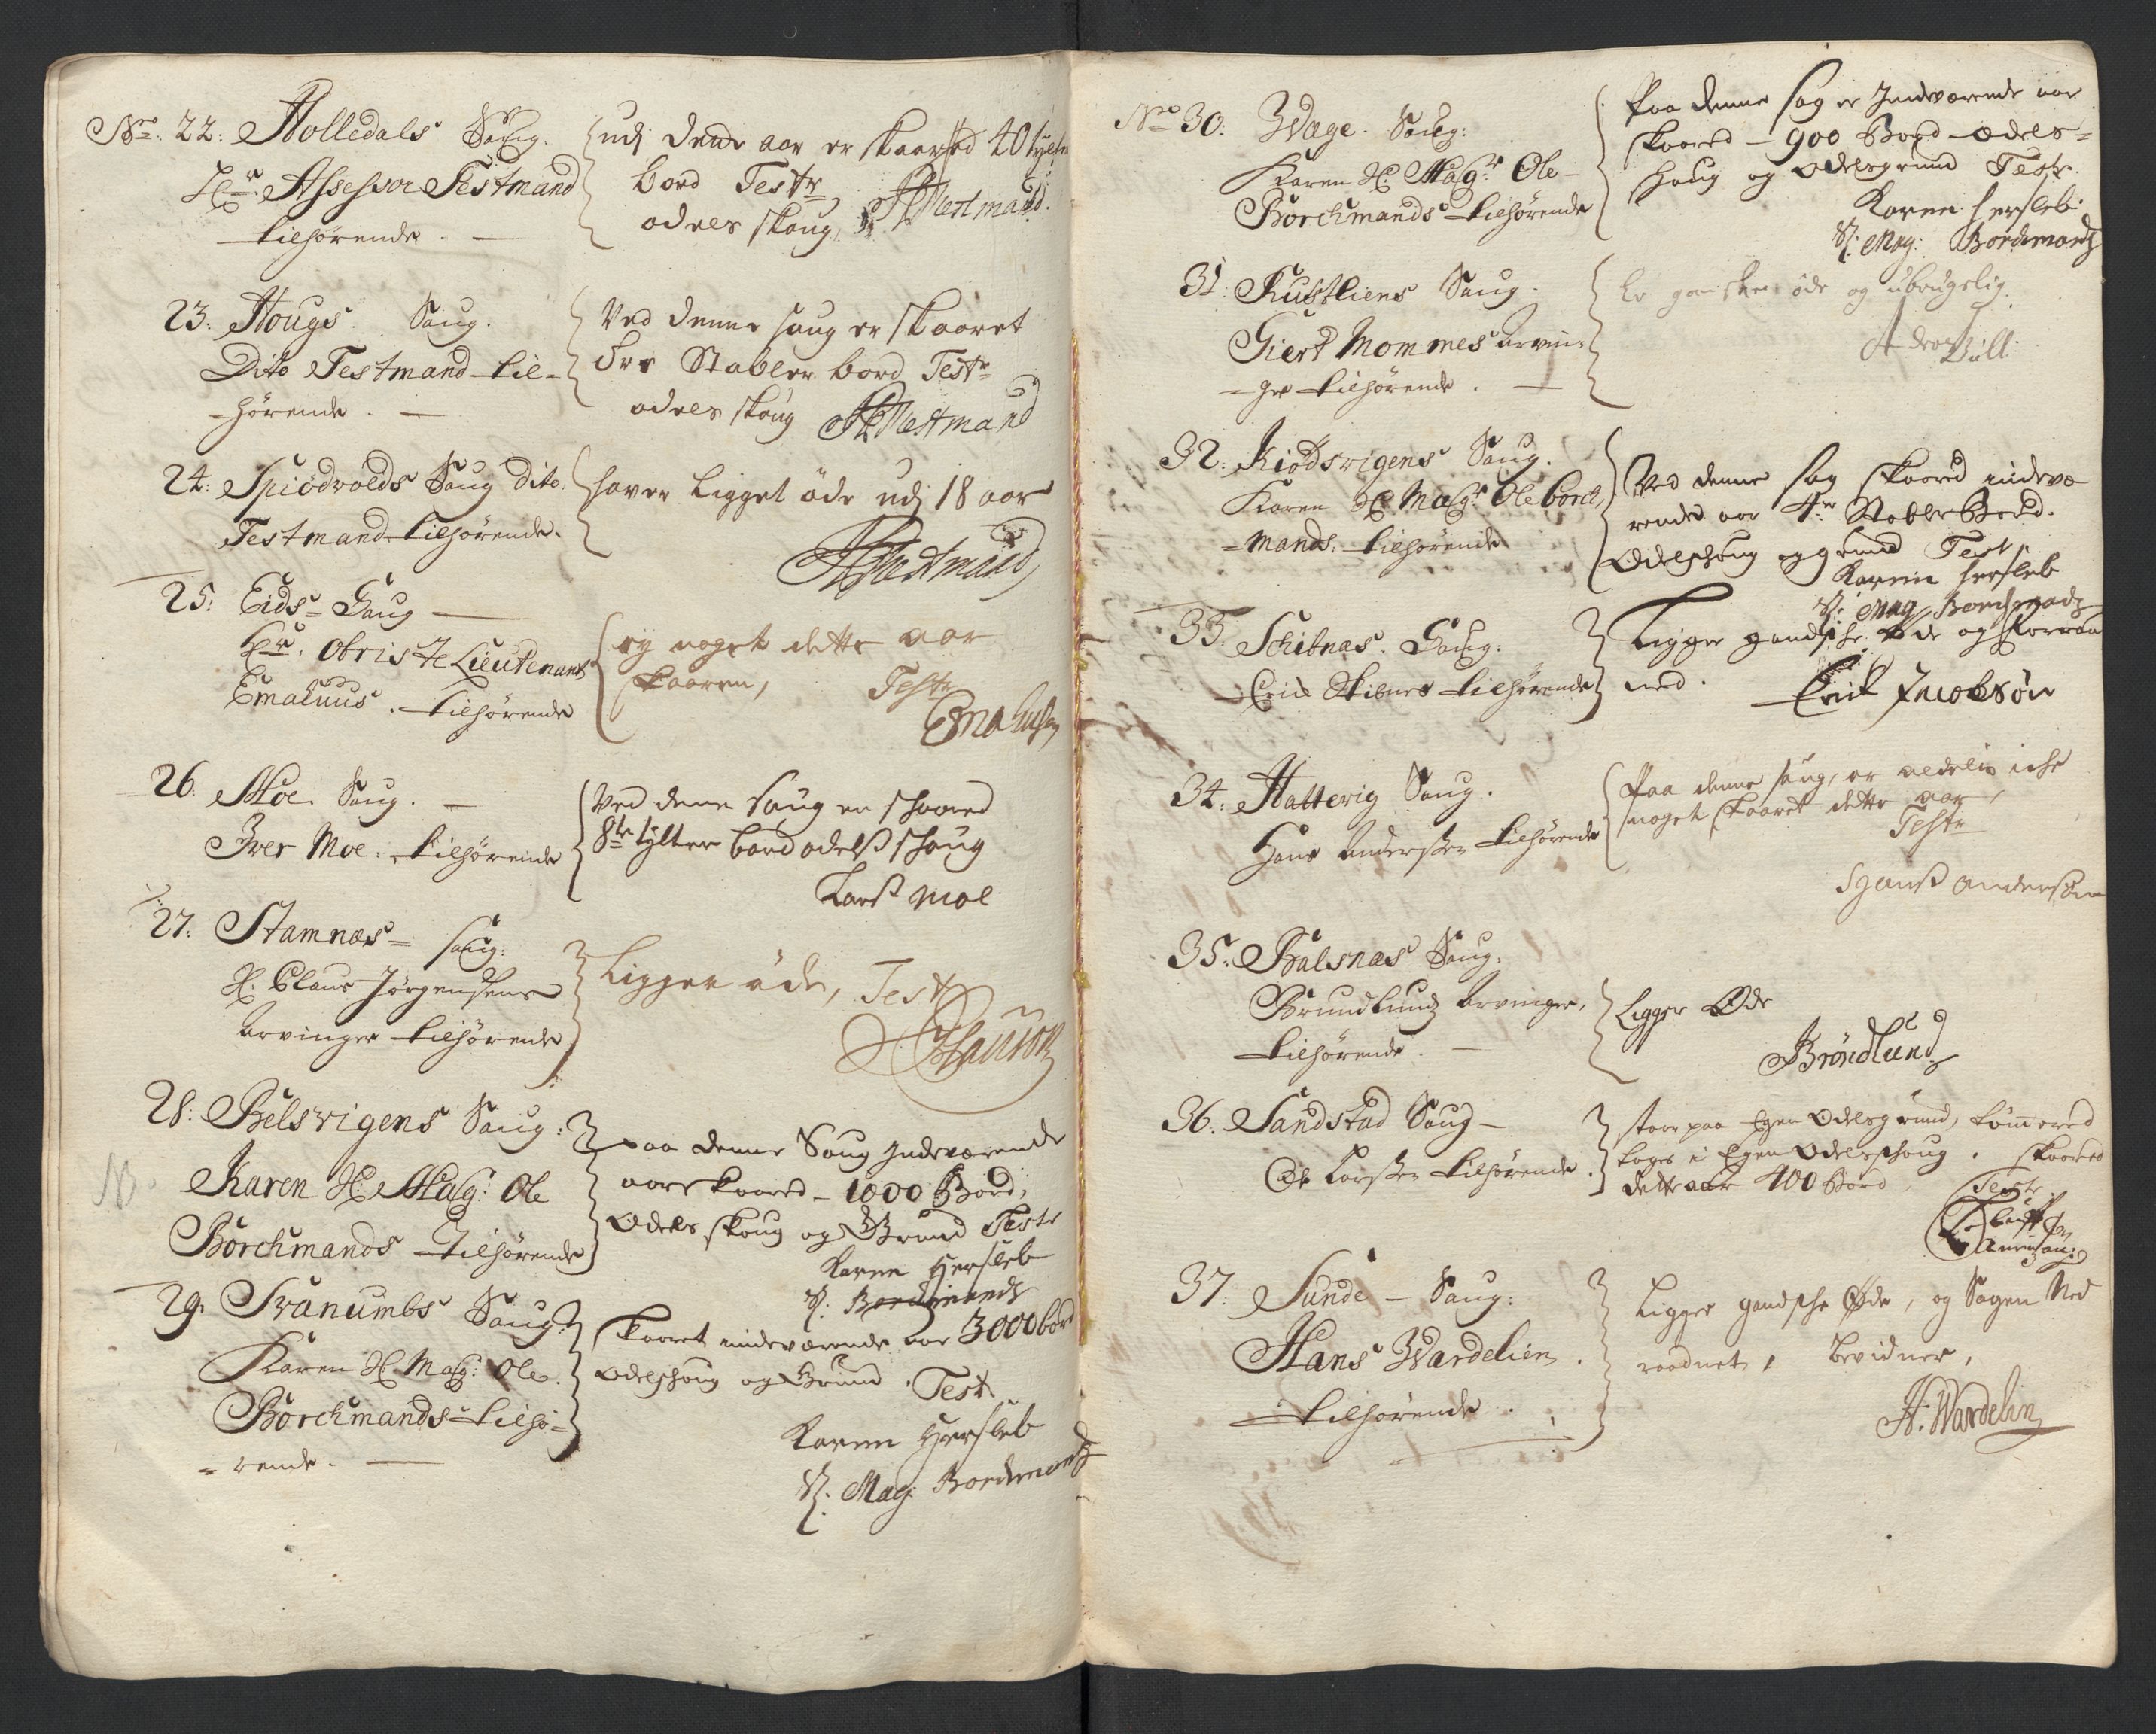 Nro. 22: Holledals Saug.
Hr. Assessor Testmand
tilhørende. —
udj dette aar er skaaret 40 tylter
bord Testr.
odels skoug, H Testmand.
23: Hougs Saug.
Dito Testmand til-
=hørende. —
Ved denne saug er skaaret
Stabler bord Testr.
odels skoug H Testmand
24: Spiødvolds Saug Dito
Testmand tilhørende.
haver ligget øde udj 18 aar
H Testmand
25: Eids= Saug —
Hr. Obriste Lieutenant
Emahuus. tilhørende
ej noget dette aar
skaaren, Testr
Emahusen
26. Moe Saug. —
Iver Moe. tilhørende
Ved denne saug er skaared
8te tylter bord odelß skoug
Larß Moe
27. Stamnæs= saug:
H. Claus Jørgensens
Arvinger tilhørende
Ligger øde, Test
28: Belsvigens Saug:
NB.
Karen H: Mag: Ole
Borchmands tilhørende
paa denne Saug Indeværende
aar skaared - 1000 Bord,
Odels skoug og Grund Testr
Karen Hersleb
S. Borchmands
29. Svanumbs Saug:
Karen H. Mag: Ole
Borchmands= tilhø=
=rende. —
Skaaret indeværende aar 3000 bord
Odelskoug og Grund. Test.
Karen Hersleb
S. Mag. Borchmands
Nro 30. Wage. Saug:
Karen H. Magr. Ole-
Borchmands tilhørende
Paa denne sag er Indeværende aar
skaared - 900 Bord - odels=
skoug og odelsgrund Testr.
Karen Hersleb.
S. Mag: Borchmands
31: Rustliens Saug.
Giert Mommes Arvin=
=ger tilhørende. —
Er gandske øde og ubrugelig.
32. Kiødsvigens Saug.
Karen H Magr. Ole Borch
=mands. tilhørende
Ved denne sag skaared indevæ
rende aar 4re Stabler Bord.
Odelskoug og grund Test.
Karen Hersleb
S. Mag Borchmands
33. Schibnas. Saug:
Erich Skibnes tilhørende
Ligger gandske øde og forraa
ned. Erick Jacobsøn
34. Hattevig Saug.
Hans Andersen tilhørende
Paa denne saug, er aldelis iche
noget skaaret dette aar,
Testr
Hanß Andersøn
35. Balsnæs Saug.
Brundlunds Arvinger,
tilhørende. —
Ligger Øde
Brøndlund
36. Sandstad Saug —
Ole Larsen tilhørende.
staar paa Egen Odelsgrund, tømmered
tages i Egen Odelsskoug. skaared
dette aar 400 Bord Testr
37. Sunde — Saug:
Hans Wardelien.
tilhørende.
Ligger gandske Øde, og Sagen Ned
raadnet, bevidner,
H. Wardelin